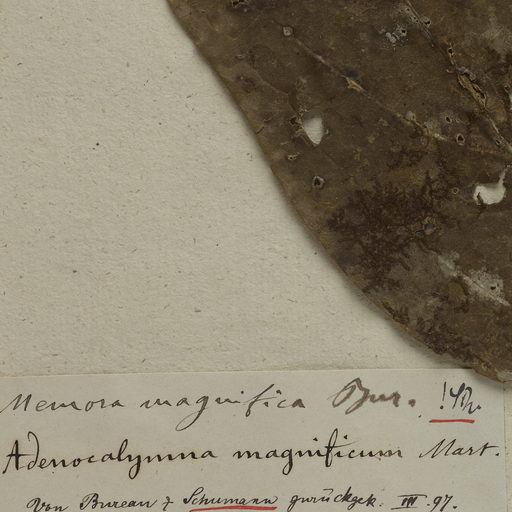 Memora magnifica Bur.
Adenocalymna magnificum Mart.
Von Bureau & Schumann zurückgek. III.97.